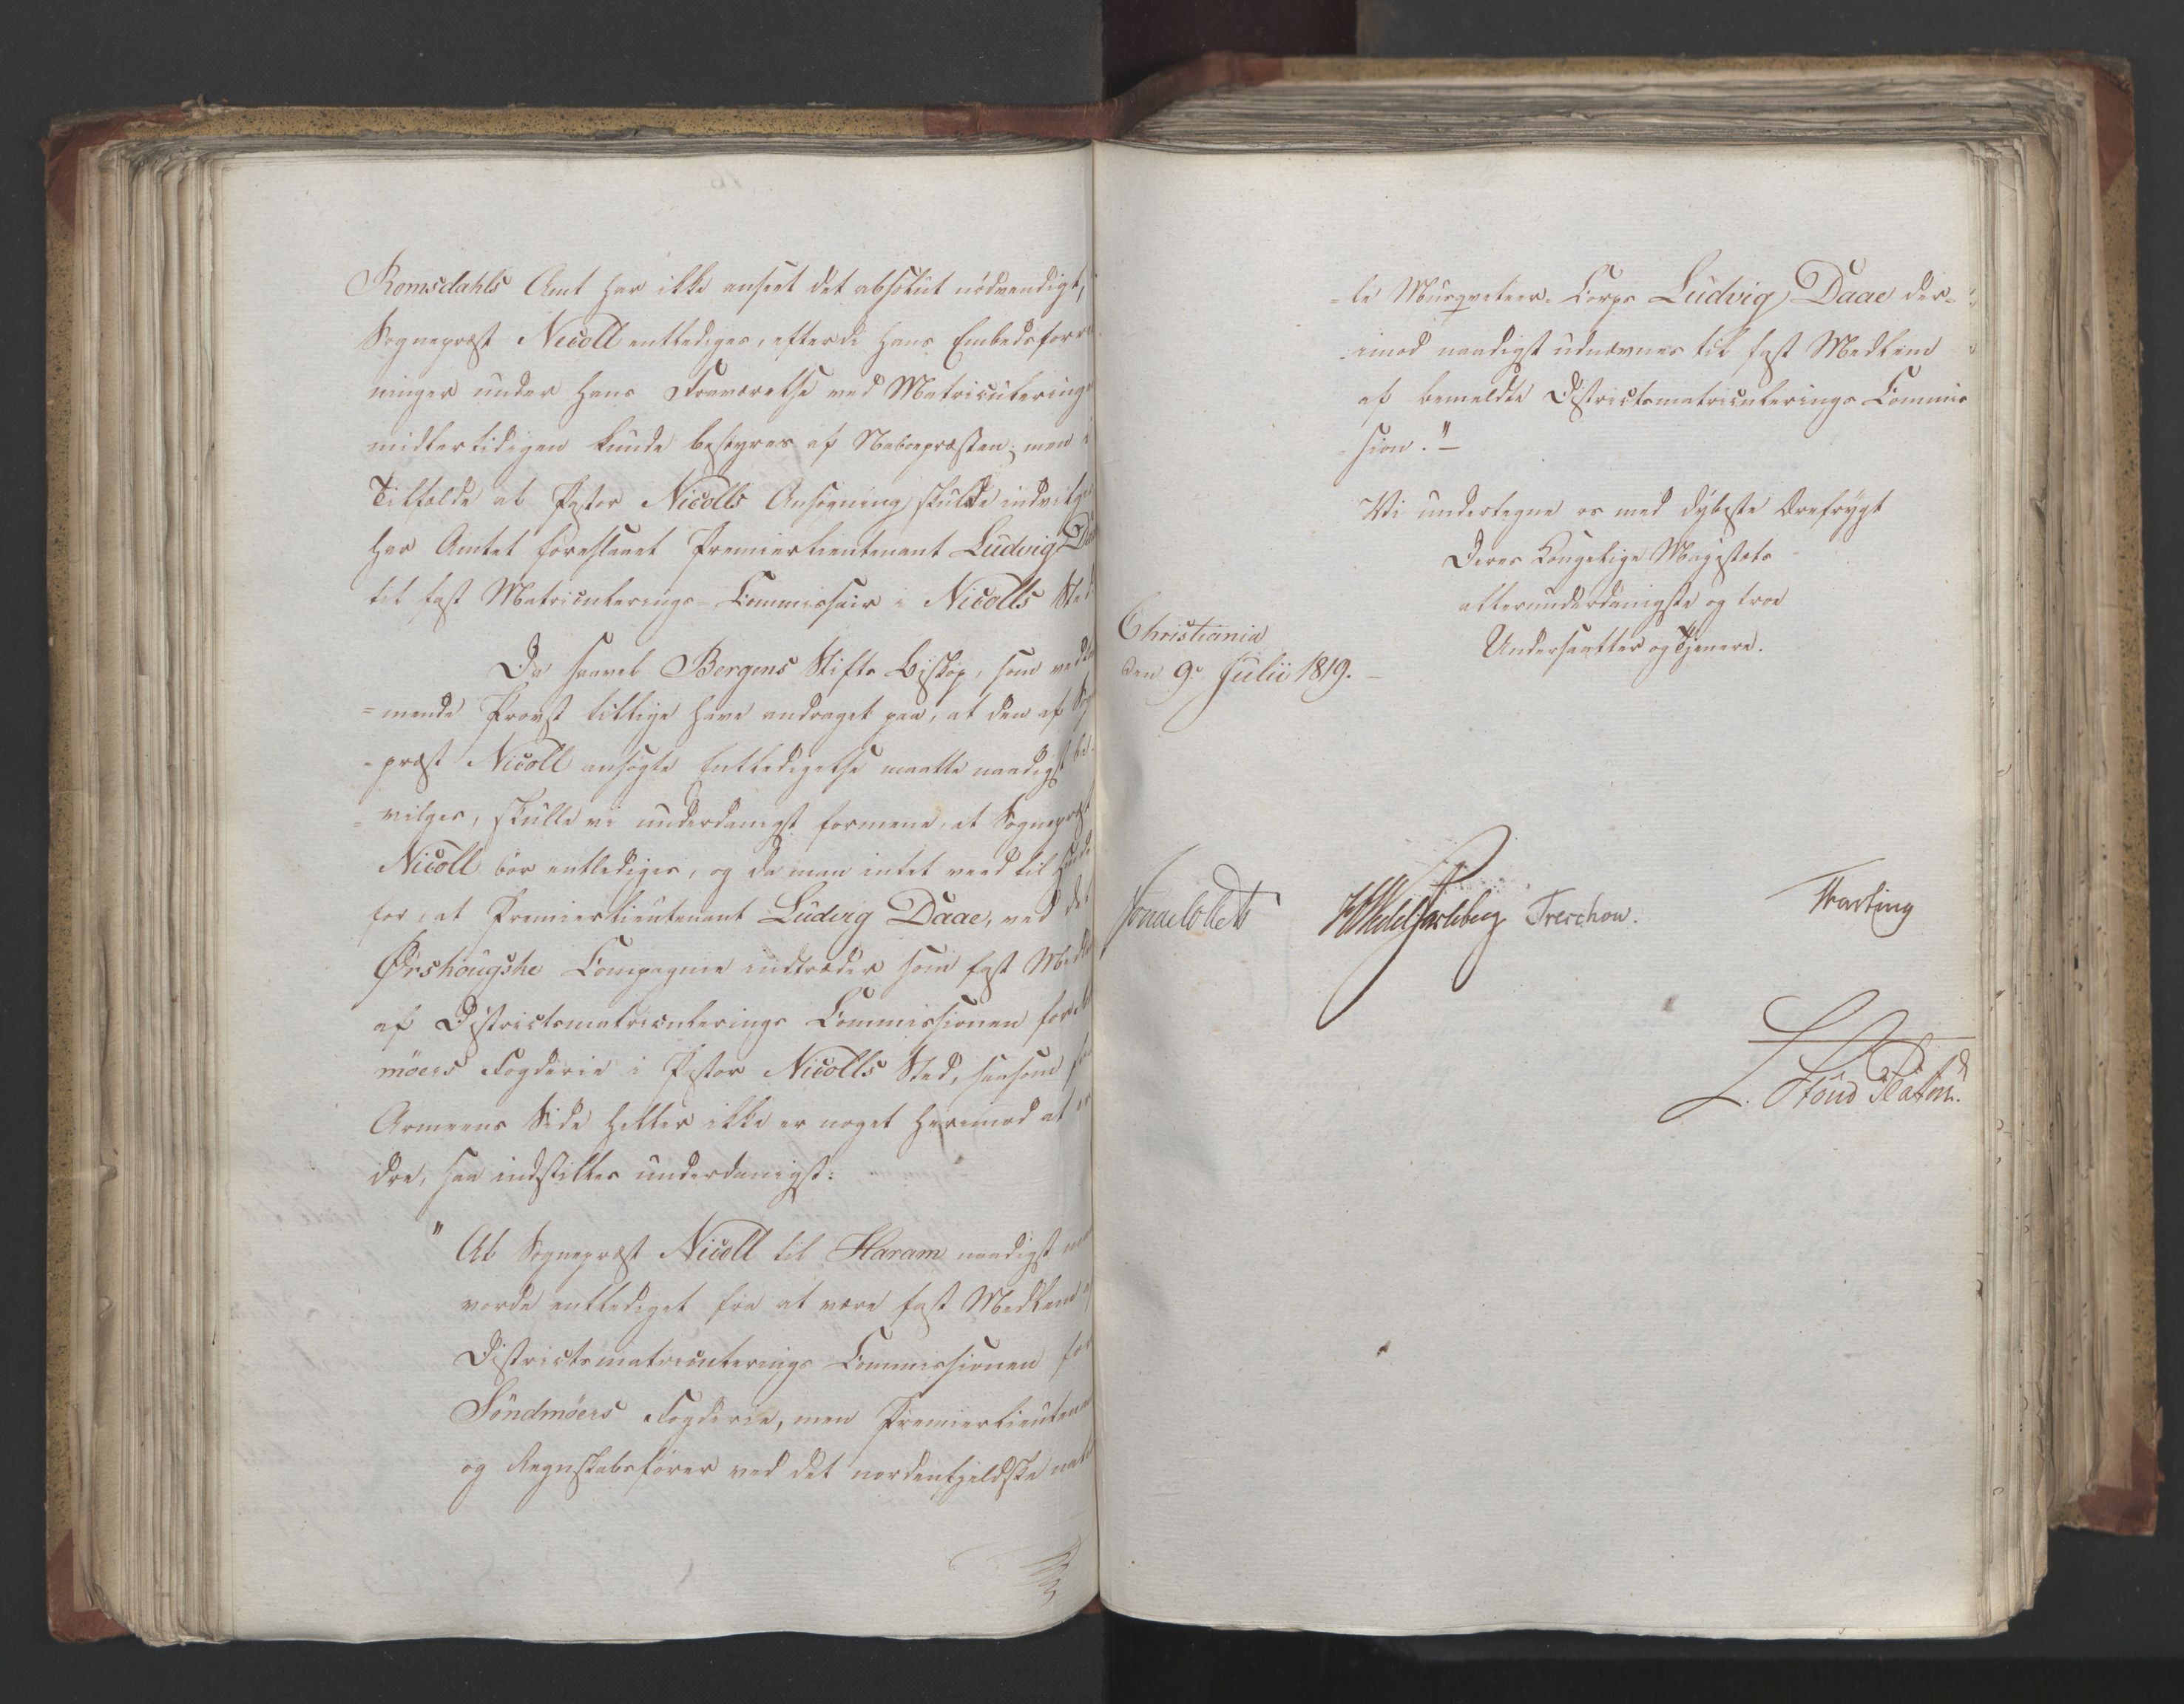 Romsdahls Amt har ikke anseet det absolut nödvendigt,
Sognepræst Nicoll entlediges, efterdi hans Embedsforret
ninger under hans Fraværelse ved Matriculeringen
midlertidigen kunde bestyres af Naboepræsten; men i
Tilfælde at Pastor Nicolls Ansøgning skulde indvilges
har Amtet foreslaaet Premierlieutenant Ludvig Daae
til fast Matriculerings-Commissair i Nicolls Sted.
Da saavel Bergens Stifts Biskop, som vedkom
=mende Provst tillige have andraget paa, at den af Sogne
=præst Nicoll ansøgte Entledigelse maatte naadigst be-
=vilges, skulle vi underdanigst formene, at Sognepræst
Nicoll bør entlediges, og da man intet veed til Hinder
for, at Premierlieutenant Ludvig Daae, ved det
Ørshougske Compagnie indtræder som fast Medlem
af Districtsmatriculerings Commissionen for
möers Fogderie i Pastor Nicolls Sted, saasom fra
Armeens Side heller ikke er noget herimod at er
dre, saa indstilles underdanigst:
"At Sognepræst Nicoll til Haram naadigst maa
vorde entlediget fra at være fast Medlem af
Districtsmatriculerings Commissionen for
Söndmöers Fogderie, men Premierlieutenant
og Regnskabsfører ved det nordenfjeldske
=le Musqveteer-Corps Ludvig Daae der-
=imod naadigst udnævnes til fast Medlem
af bemeldte Districtsmatriculerings Commis
=sion."—
Vi undertegne os med dybeste Ærefrygt
Deres Kongelige Majestæts
allerunderdanigste og troe
Undersaatter og Tjenere.
Christiania
den 9de Julii 1819.
Sommelzen Collett Wedel Jarlsberg Treschow. Krag
L. Stoud Platou.